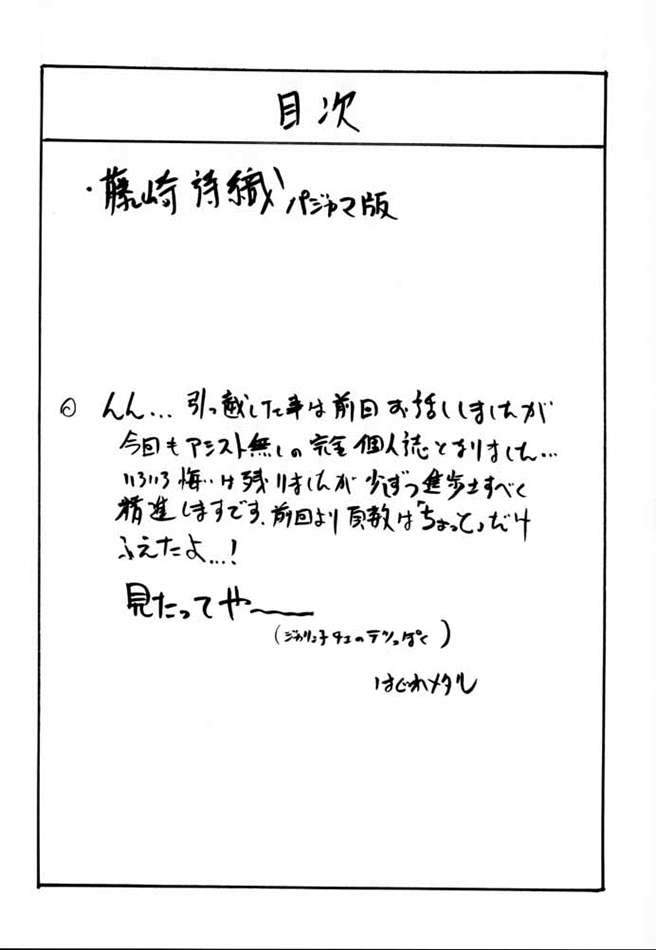 目次
・藤崎詩織 パジャマ版
◎ んん… 引っ越した事は前回お話ししましたが
今回もアシスト無しの完全個人誌となりました…
いろいろ悔いは残りましたが少しずつ進歩すべく
精進しますです、前回より頁数は「ちょっと」だけ
ふえたよ…!
見たってや〜
(ジャリン子チエのテツっぽく)
はぐれメタル